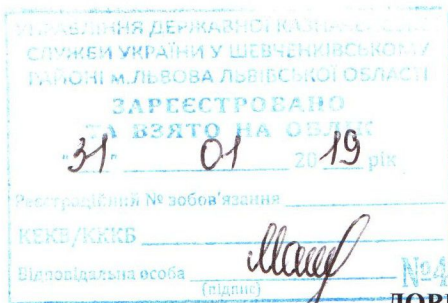 УПРАВЛІННЯ ДЕРЖАВНОЇ КАЗНАЧЕЙСЬКОЇ
СЛУЖБИ УКРАЇНИ У ШЕВЧЕНКІВСЬКОМУ
РАЙОНІ м.ЛЬВОВА ЛЬВІВСЬКОЇ ОБЛАСТІ
ЗАРЕЄСТРОВАНО
ТА ВЗЯТО НА ОБЛІК
"31" 01 2019 рік
Реєстраційний № зобов'язання
КЕКВ/ККК
Відповідальна особа
(підпис)
№4
ДОВ